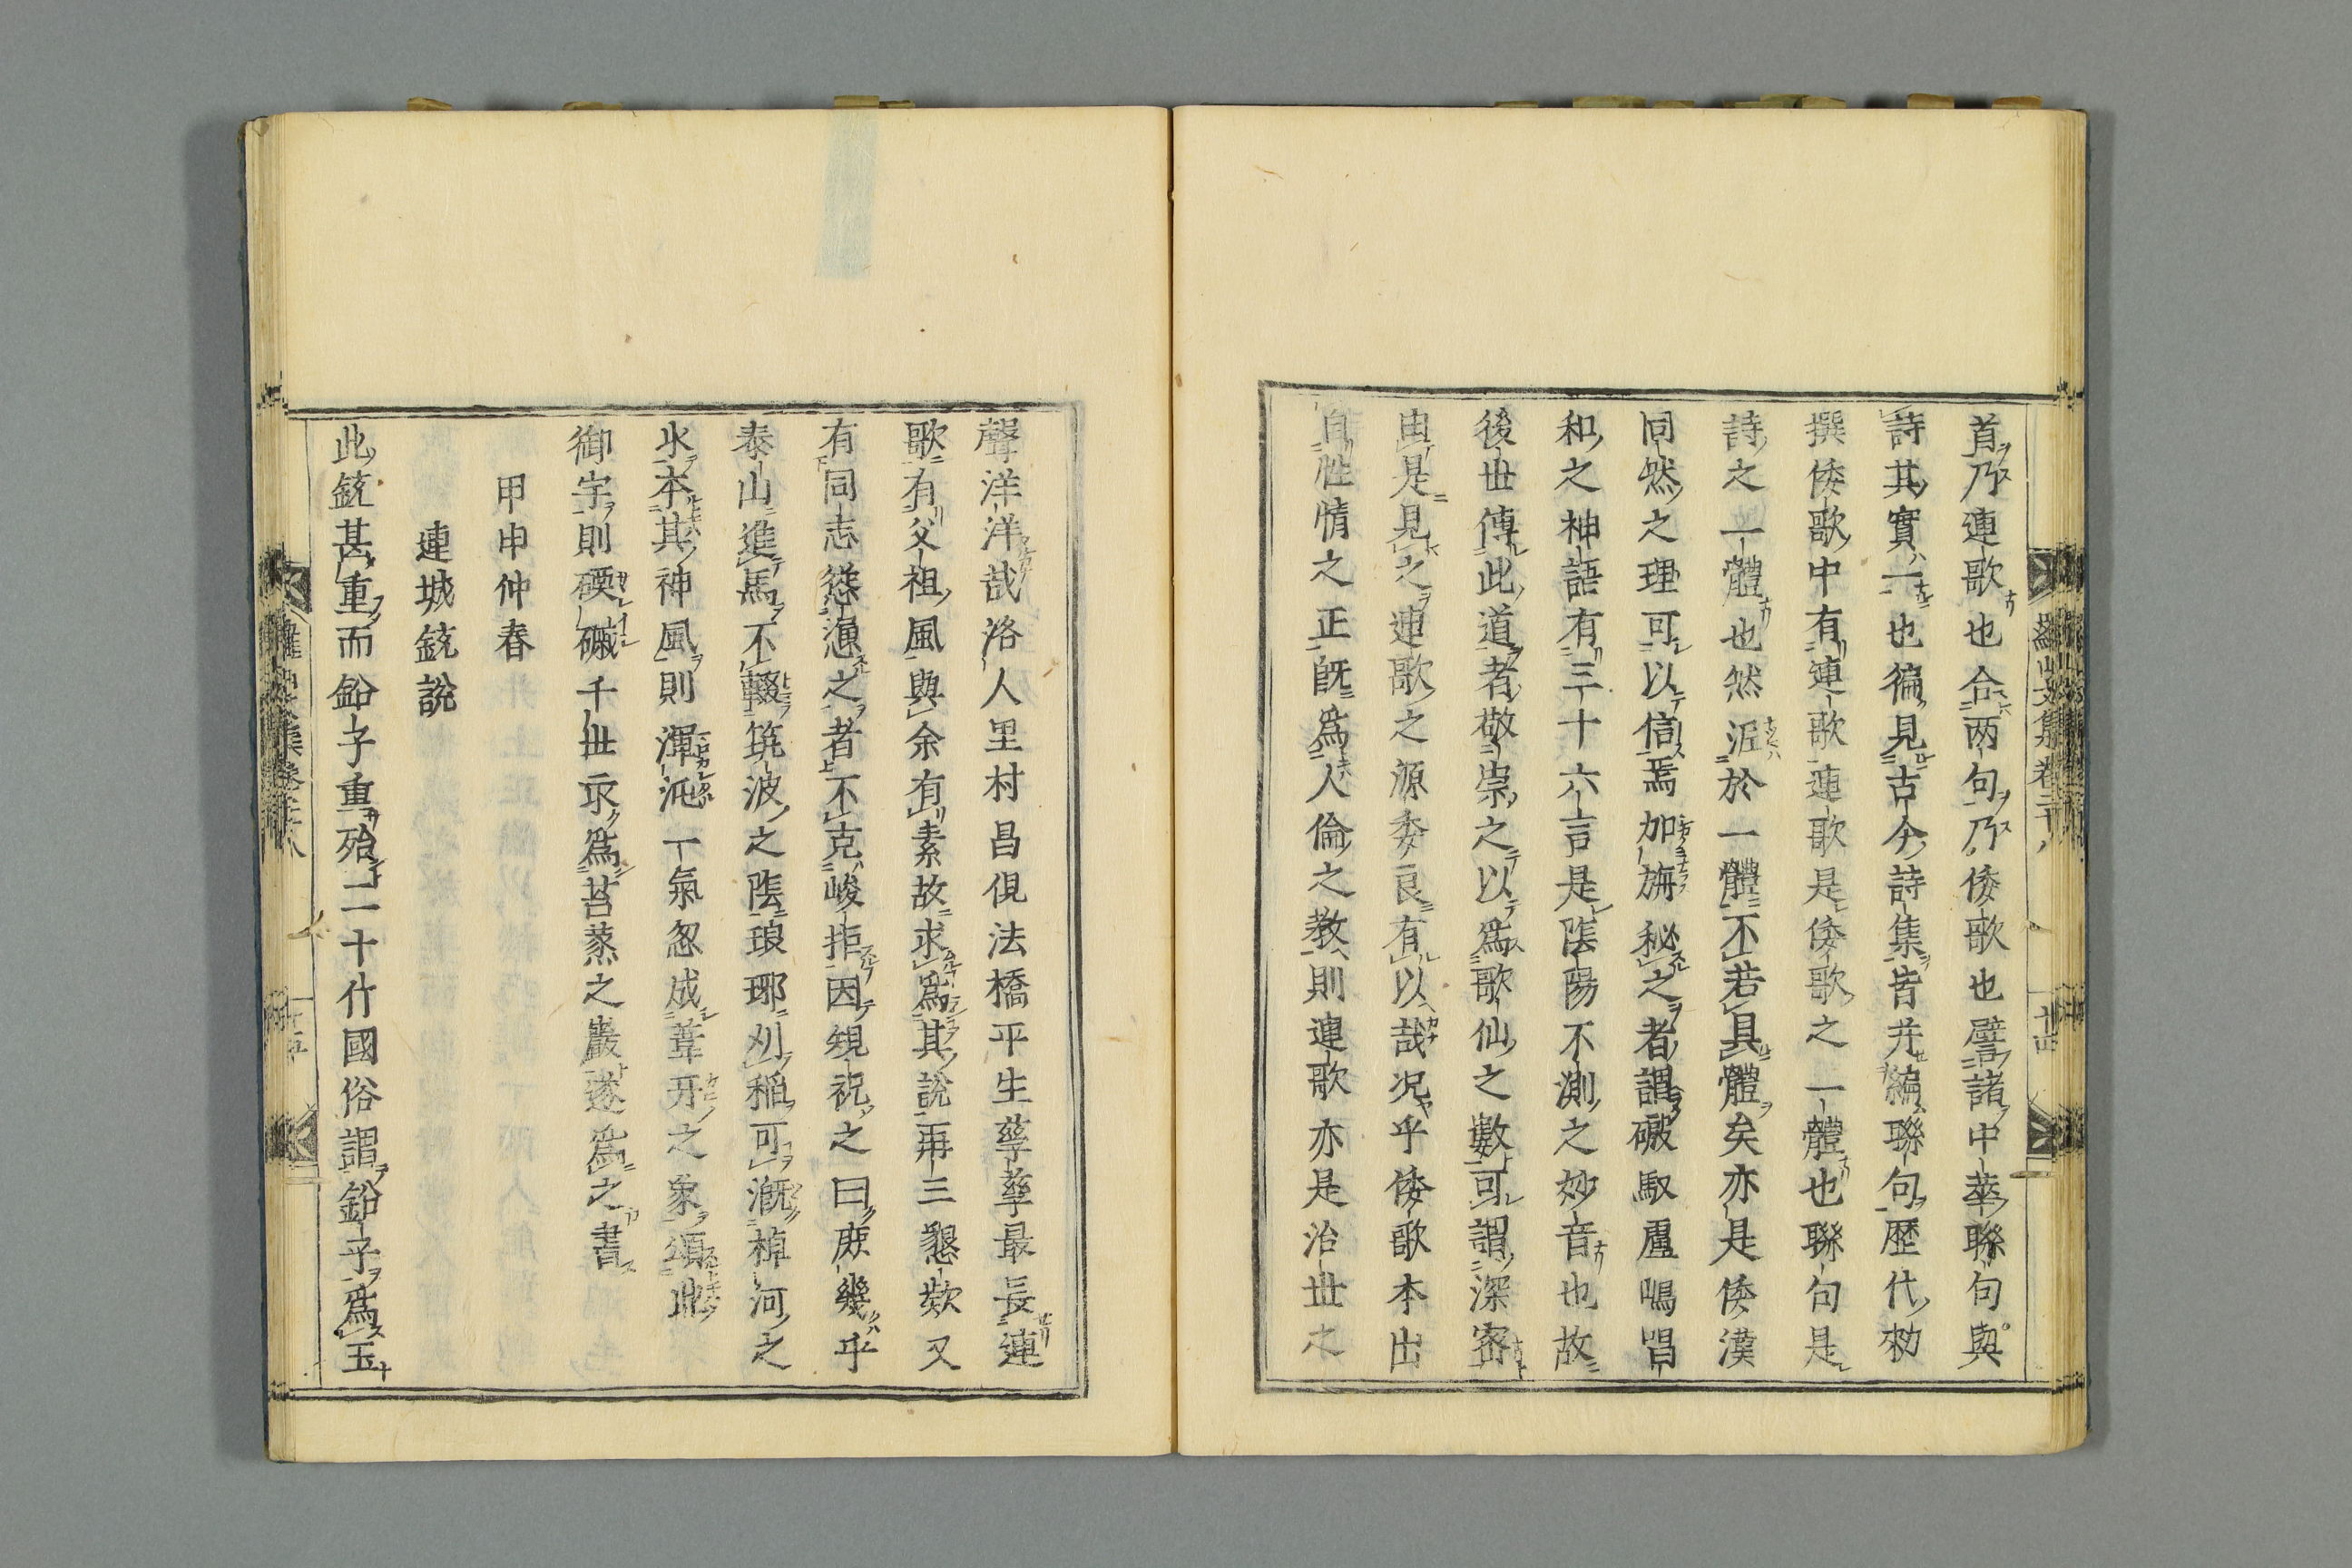 首乃連歌也合两句乃倭歌也譬諸中華聯句與
詩其實一也徧見古今詩集皆并編聯句歴代勑
撰倭歌中有連歌連歌是倭歌之一體也聯句是
詩之一體也然泥於一體不若具體矣亦是倭漢
同然之理可以信焉加旃秘之者謂磤馭盧嶋唱
和之神語有三十六言是陰陽不測之妙音也故
後世傳此道者敬崇之以爲歌仙之數可謂深密
由是見之連歌之源委良有以哉况乎倭歌本出
自性情之正旣爲人倫之教則連歌亦是治世之
聲洋洋哉洛人里村昌俔法橋平生孳孳最長連
歌有父祖風與余有素故求爲其說再三懇欵又
有同志慫慂之者不克峻拒因䂓祝之曰庶幾乎
泰山進馬不輟筑波之陰琅瑘刈稲可漑棹河之
水本其神風則渾沌一氣忽成葦牙之象頌此
御宇則磤礟千世永爲苔蒸之巖遂爲之書
甲申仲春
連城銃說
此銃甚重而鉛子重殆二十斤國俗謂鉛子爲玉